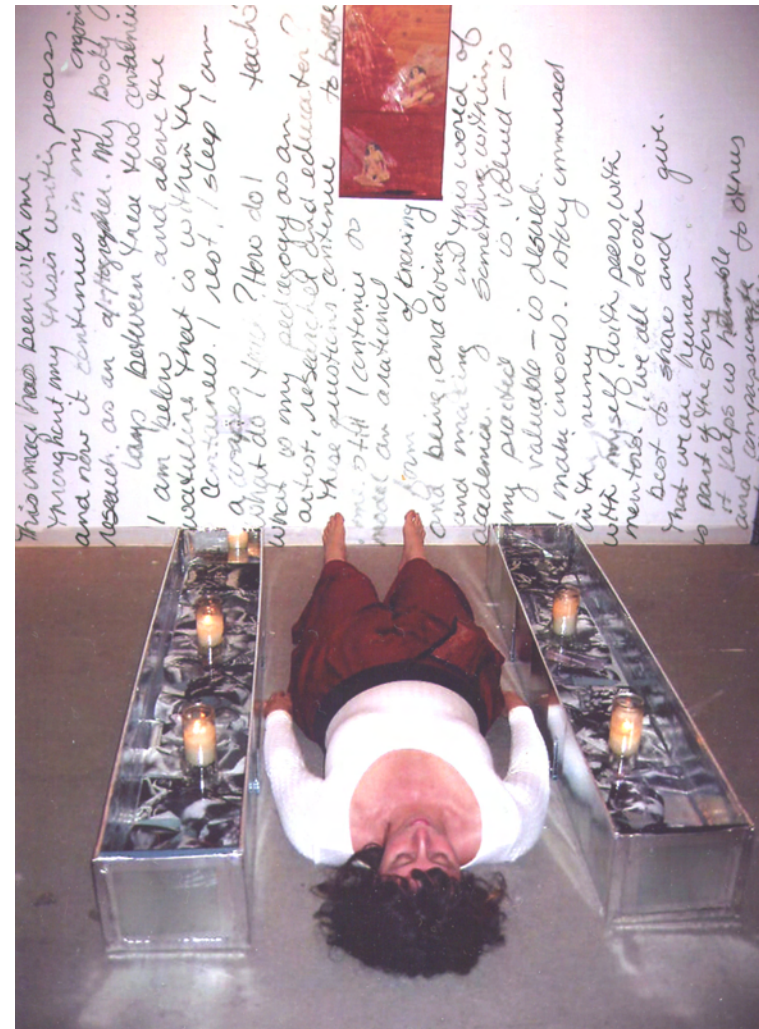 This image has been with me
throughout my thesis writing process
and now it continues in my ongoing
research as an a/r/tographer. My body
lays between these two containers
I am below and above the
waterline that is within the
containers. I rest, I sleep I am
a corpse
what do I ? How do I teach
what is my pedagogy as an
artist, researcher and educator?
These questions continue to
me still I continue to
model an arational
form of knowing
and being, and doing
and making in this world of
cadence. Something within
my practice is valued – is
valuable – is desired.
I make moods. I stay immersed
in the
with myself, with peers, with
mentors. I we all do our
best to share and give.
That we are human
is part of the story
it keeps us humble
and compassionate to others